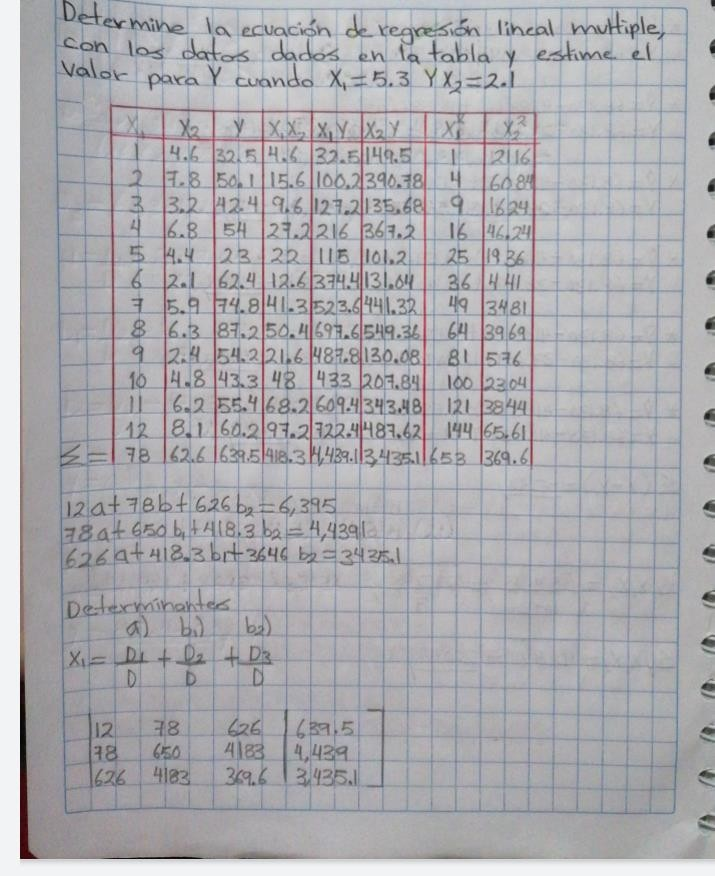 Determine la ecuación de regresión lineal multiple,
con los datos dados en la tabla y estime el
valor para Y cuando X₁=5.3 Y X₂=2.1
X₁ X₂ Y X₁X₂ X₁Y X₂Y X₁² X₂²
1 4.6 32.5 4.6 32.5 149.5 1 2116
2 7.8 50.1 15.6 100.2 390.78 4 6084
3 3.2 42.4 9.6 127.2 135.68 9 1624
4 6.8 54 27.2 216 367.2 16 46.24
5 4.4 23 22 115 101.2 25 1936
6 2.1 62.4 12.6 374.4 131.04 36 441
7 5.9 74.8 41.3 523.6 441.32 49 3481
8 6.3 87.2 50.4 697.6 549.36 64 3969
9 2.4 54.2 21.6 487.8 130.08 81 576
10 4.8 43.3 48 433 207.84 100 2304
11 6.2 55.4 68.2 609.4 343.48 121 3844
12 8.1 60.2 97.2 722.4 487.62 144 65.61
Σ= 78 62.6 639.5 418.3 4,439.1 3,435.1 653 369.6
12a+78b+626b₂=6,395
78a+650b₁+418.3b₂=4,4391
626a+418.3b₁+3646b₂=3435.1
Determinantes
a) b₁) b₂)
X₁= D1/D + D2/D + D3/D
12 78 626 639.5
78 650 4183 4,439
626 4183 369.6 3,435.1